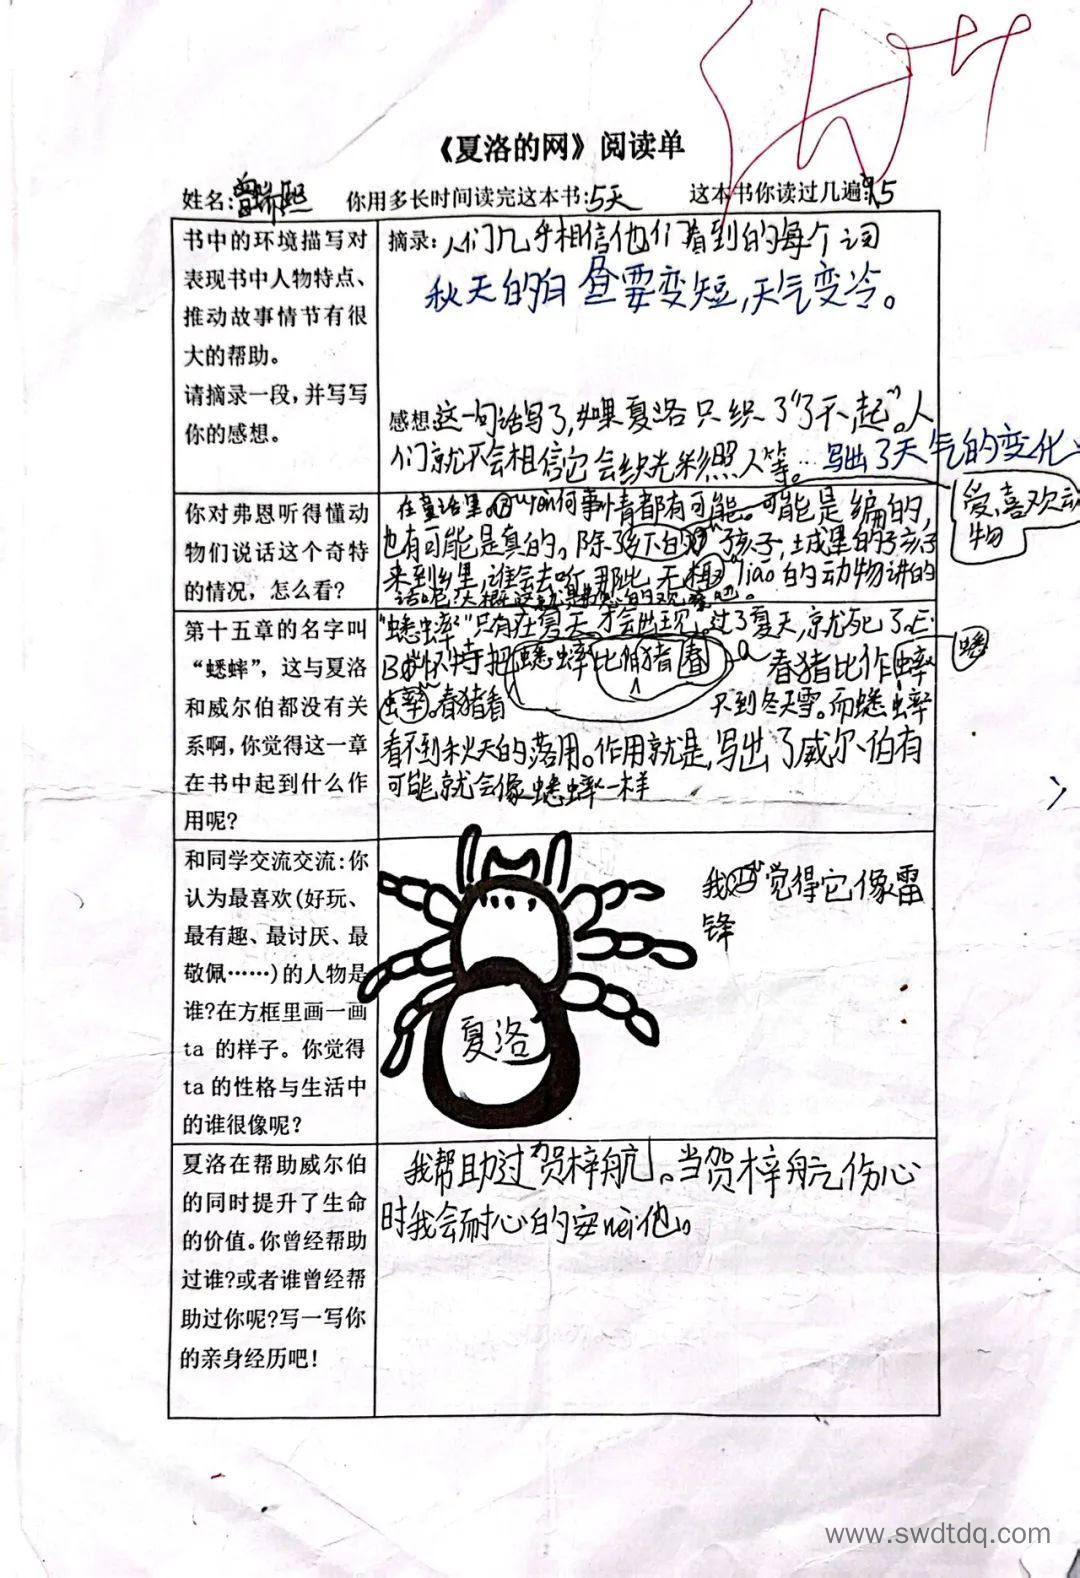 《夏洛的网》阅读单
姓名: 你用多长时间读完这本书:5天 这本书你读过几遍: 5
书中的环境描写对
表现书中人物特点、
推动故事情节有很
大的帮助。
请摘录一段,并写写
你的感想。
摘录:人们几乎相信他们看到的每个词
秋天的白昼要变短,天气变冷。
感想:这一句话写了,如果夏洛只织了“了不起”。人
们就不会相信它会织光彩照人等。…写出了天气的变化
你对弗恩听得懂动
物们说话这个奇特
的情况,怎么看?
在童话里。 何事情都有可能。可能是编的,
也有可能是真的。除了 孩子,城里的孩子
来到乡里,谁会去听那些无 liáo的动物讲的
话呢
爱,喜欢动
物
第十五章的名字叫
“蟋蟀”,这与夏洛
和威尔伯都没有关
系啊,你觉得这一章
在书中起到什么作
用呢?
“蟋蟀”只有在夏天,才会出现。过了夏天,就死了。E·
B·怀特把蟋蟀比 猪 春 春猪比作蟀 蟋
蟀。春猪看 不到冬天雪。而蟋蟀
看不到秋天的落用。作用就是,写出了威尔伯有
可能就会像蟋蟀一样
和同学交流交流:你
认为最喜欢(好玩、
最有趣、最讨厌、最
敬佩……)的人物是
谁?在方框里画一画
ta 的样子。你觉得
ta 的性格与生活中
的谁很像呢?
夏洛
我 觉得它像雷
锋
夏洛在帮助威尔伯
的同时提升了生命
的价值。你曾经帮助
过谁?或者谁曾经帮
助过你呢?写一写你
的亲身经历吧!
我帮助过“贺梓航”。当贺梓航伤心
时我会耐心的安nei他。
www.swdtdq.com